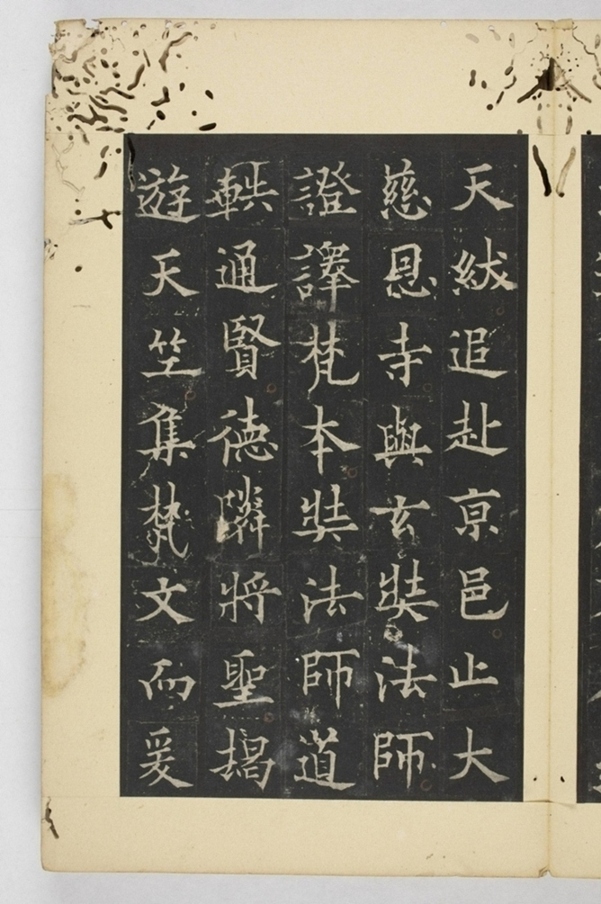 天紱追赴亰邑止大
慈恩寺與玄奘法師
證譯梵本奘法師道
軼通賢德隣將聖朅
遊天竺集梵文而爰